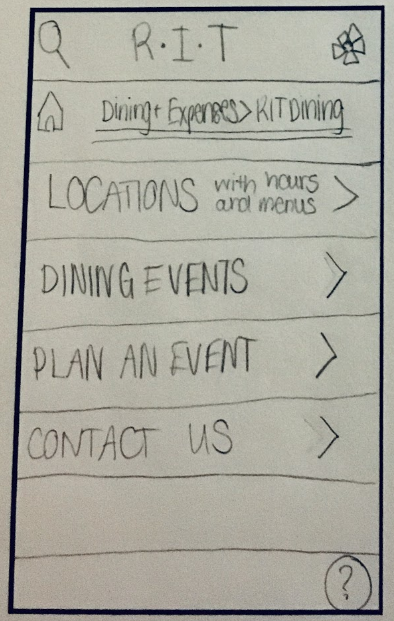 R·I·T
Dining+ Expenses > RIT Dining
LOCATIONS with hours
and menus >
DINING EVENTS >
PLAN AN EVENT >
CONTACT US >
?